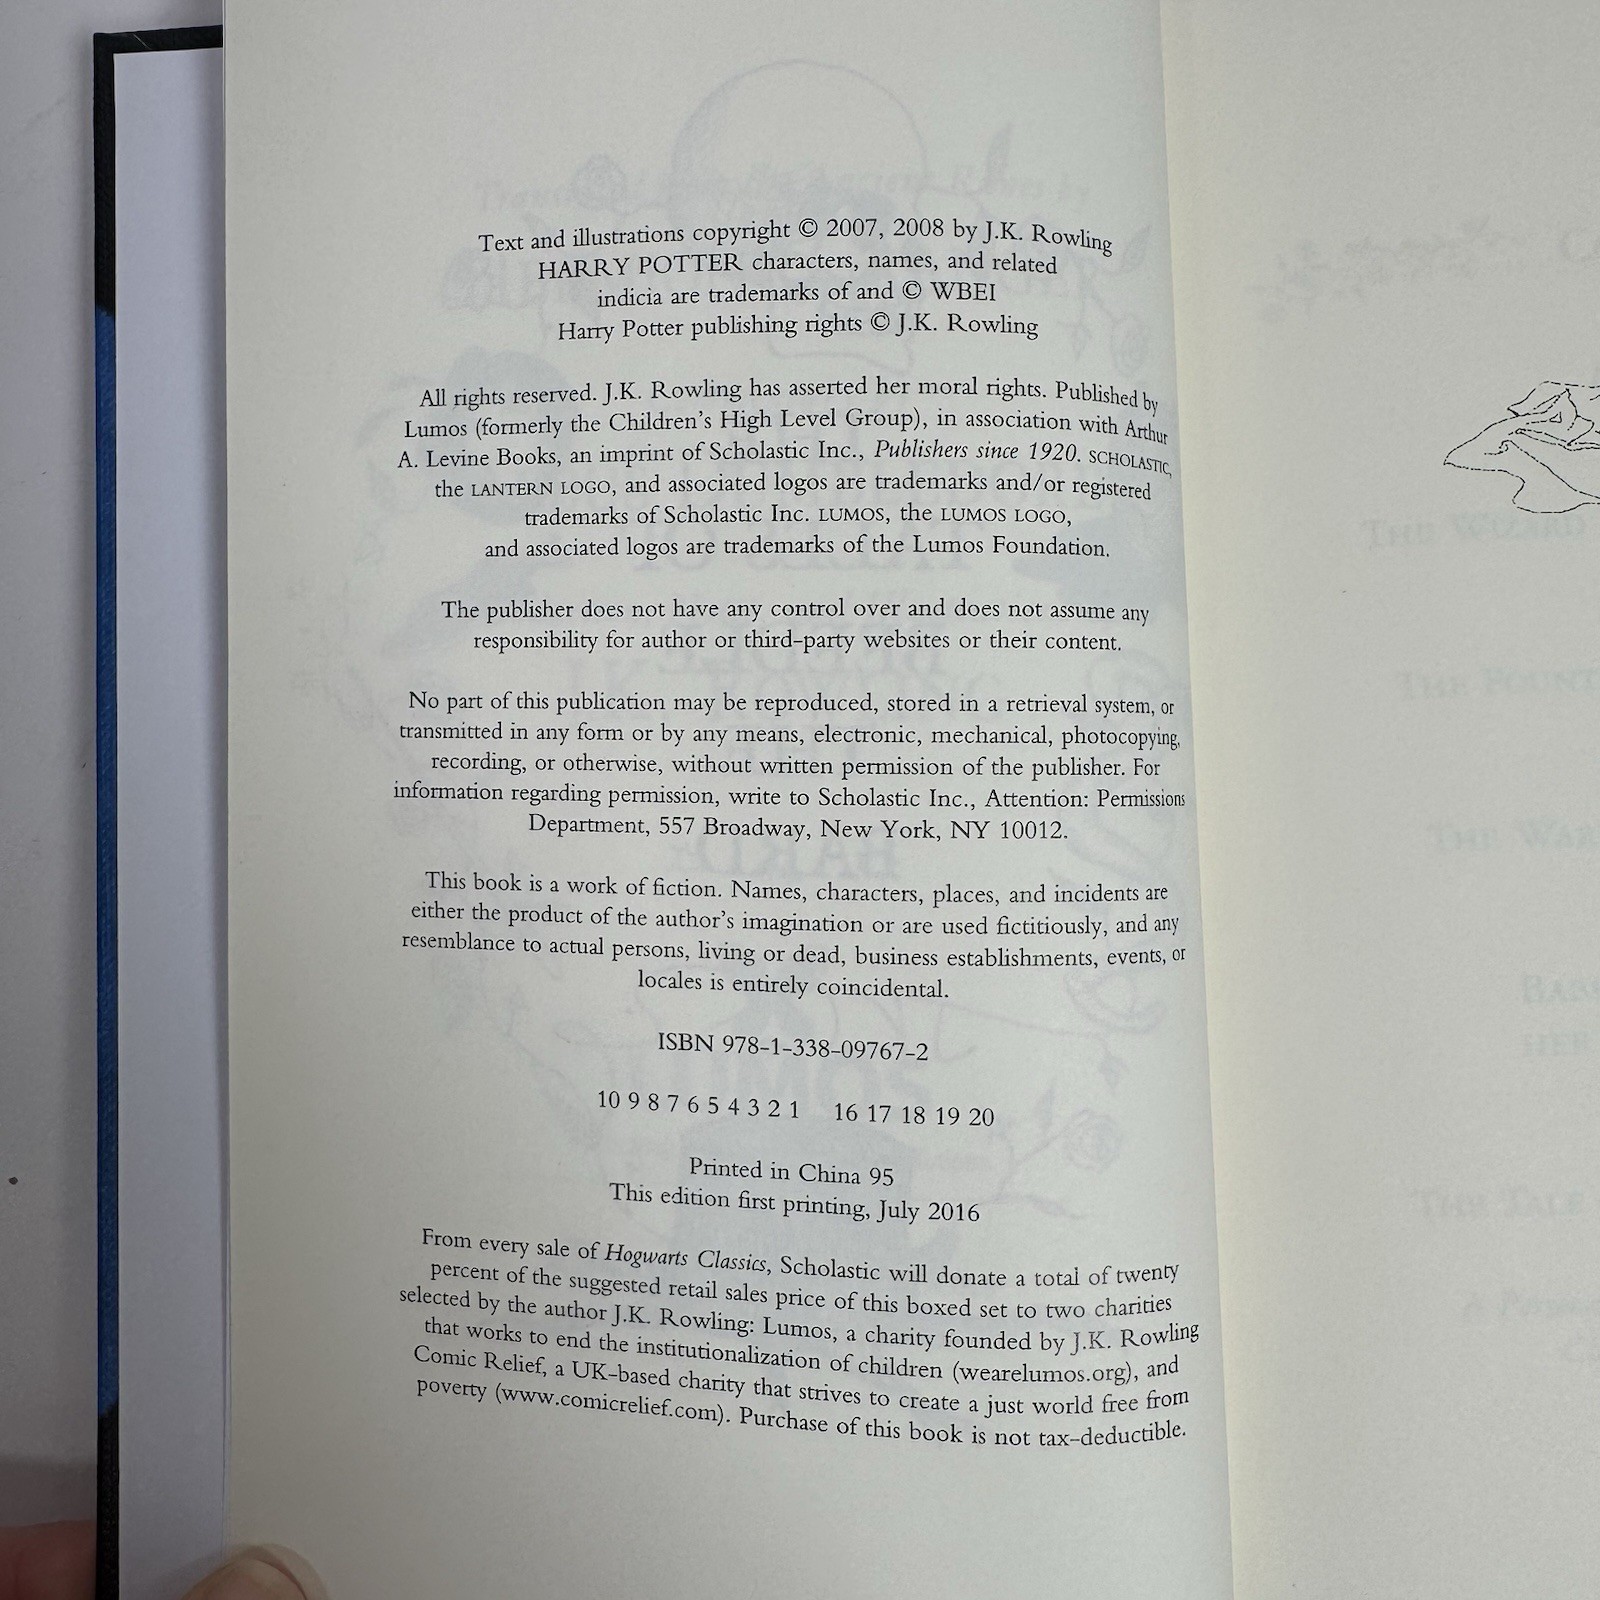 Text and illustrations copyright © 2007, 2008 by J.K. Rowling
HARRY POTTER characters, names, and related
indicia are trademarks of and © WBEI
Harry Potter publishing rights © J.K. Rowling
All rights reserved. J.K. Rowling has asserted her moral rights. Published by
Lumos (formerly the Children's High Level Group), in association with Arthur
A. Levine Books, an imprint of Scholastic Inc., Publishers since 1920. SCHOLASTIC,
the LANTERN LOGO, and associated logos are trademarks and/or registered
trademarks of Scholastic Inc. LUMOS, the LUMOS LOGO,
and associated logos are trademarks of the Lumos Foundation.
The publisher does not have any control over and does not assume any
responsibility for author or third-party websites or their content.
No part of this publication may be reproduced, stored in a retrieval system, or
transmitted in any form or by any means, electronic, mechanical, photocopying,
recording, or otherwise, without written permission of the publisher. For
information regarding permission, write to Scholastic Inc., Attention: Permissions
Department, 557 Broadway, New York, NY 10012.
This book is a work of fiction. Names, characters, places, and incidents are
either the product of the author's imagination or are used fictitiously, and any
resemblance to actual persons, living or dead, business establishments, events, or
locales is entirely coincidental.
ISBN 978-1-338-09767-2
10 9 8 7 6 5 4 3 2 1 16 17 18 19 20
Printed in China 95
This edition first printing, July 2016
From every sale of Hogwarts Classics, Scholastic will donate a total of twenty
percent of the suggested retail sales price of this boxed set to two charities
selected by the author J.K. Rowling: Lumos, a charity founded by J.K. Rowling
that works to end the institutionalization of children (wearelumos.org), and
Comic Relief, a UK-based charity that strives to create a just world free from
poverty (www.comicrelief.com). Purchase of this book is not tax-deductible.
THE WIZARD
THE
THE
HER
THE TALE